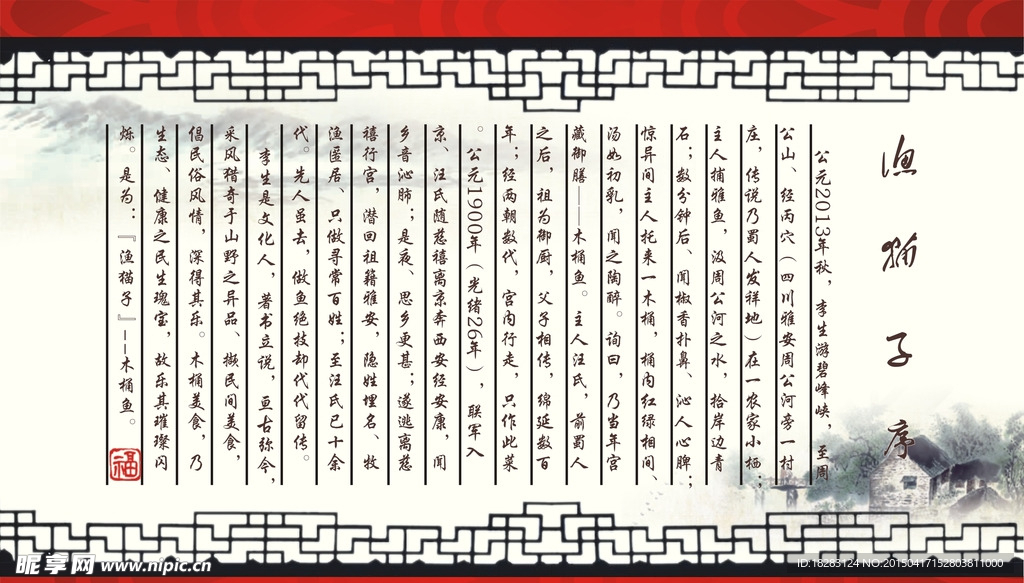 渔猫子序
公元2013年秋，李生游碧峰峡，至周
公山、经丙穴（四川雅安周公河旁一村
庄，传说乃蜀人发祥地）在一农家小栖；
主人捕雅鱼，汲周公河之水，拾岸边青
石；数分钟后、闻椒香扑鼻、沁人心脾；
惊异间主人托来一木桶，桶内红绿相间、
汤如初乳，闻之陶醉。询曰，乃当年宫
藏御膳——木桶鱼。主人汪氏，前蜀人
之后，祖为御厨，父子相传，绵延数百
年；经两朝数代，宫内行走，只作此菜
。
公元1900年（光绪26年），联军入
京、汪氏随慈禧离京奔西安经安康，闻
乡音沁肺；是夜、思乡更甚；遂逃离慈
禧行宫，潜回祖籍雅安，隐姓埋名、牧
渔匿居、只做寻常百姓；至汪氏已十余
代。先人虽去，做鱼绝技却代代留传。
李生是文化人，著书立说，亘古弥今，
采风猎奇于山野之异品、撷民间美食，
倡民俗风情，深得其乐。木桶美食，乃
生态、健康之民生瑰宝，故乐其璀璨闪
烁。是为：『渔猫子』--木桶鱼。
福
昵享网 www.nipic.cn
ID:18283124 NO:20150417152803811000